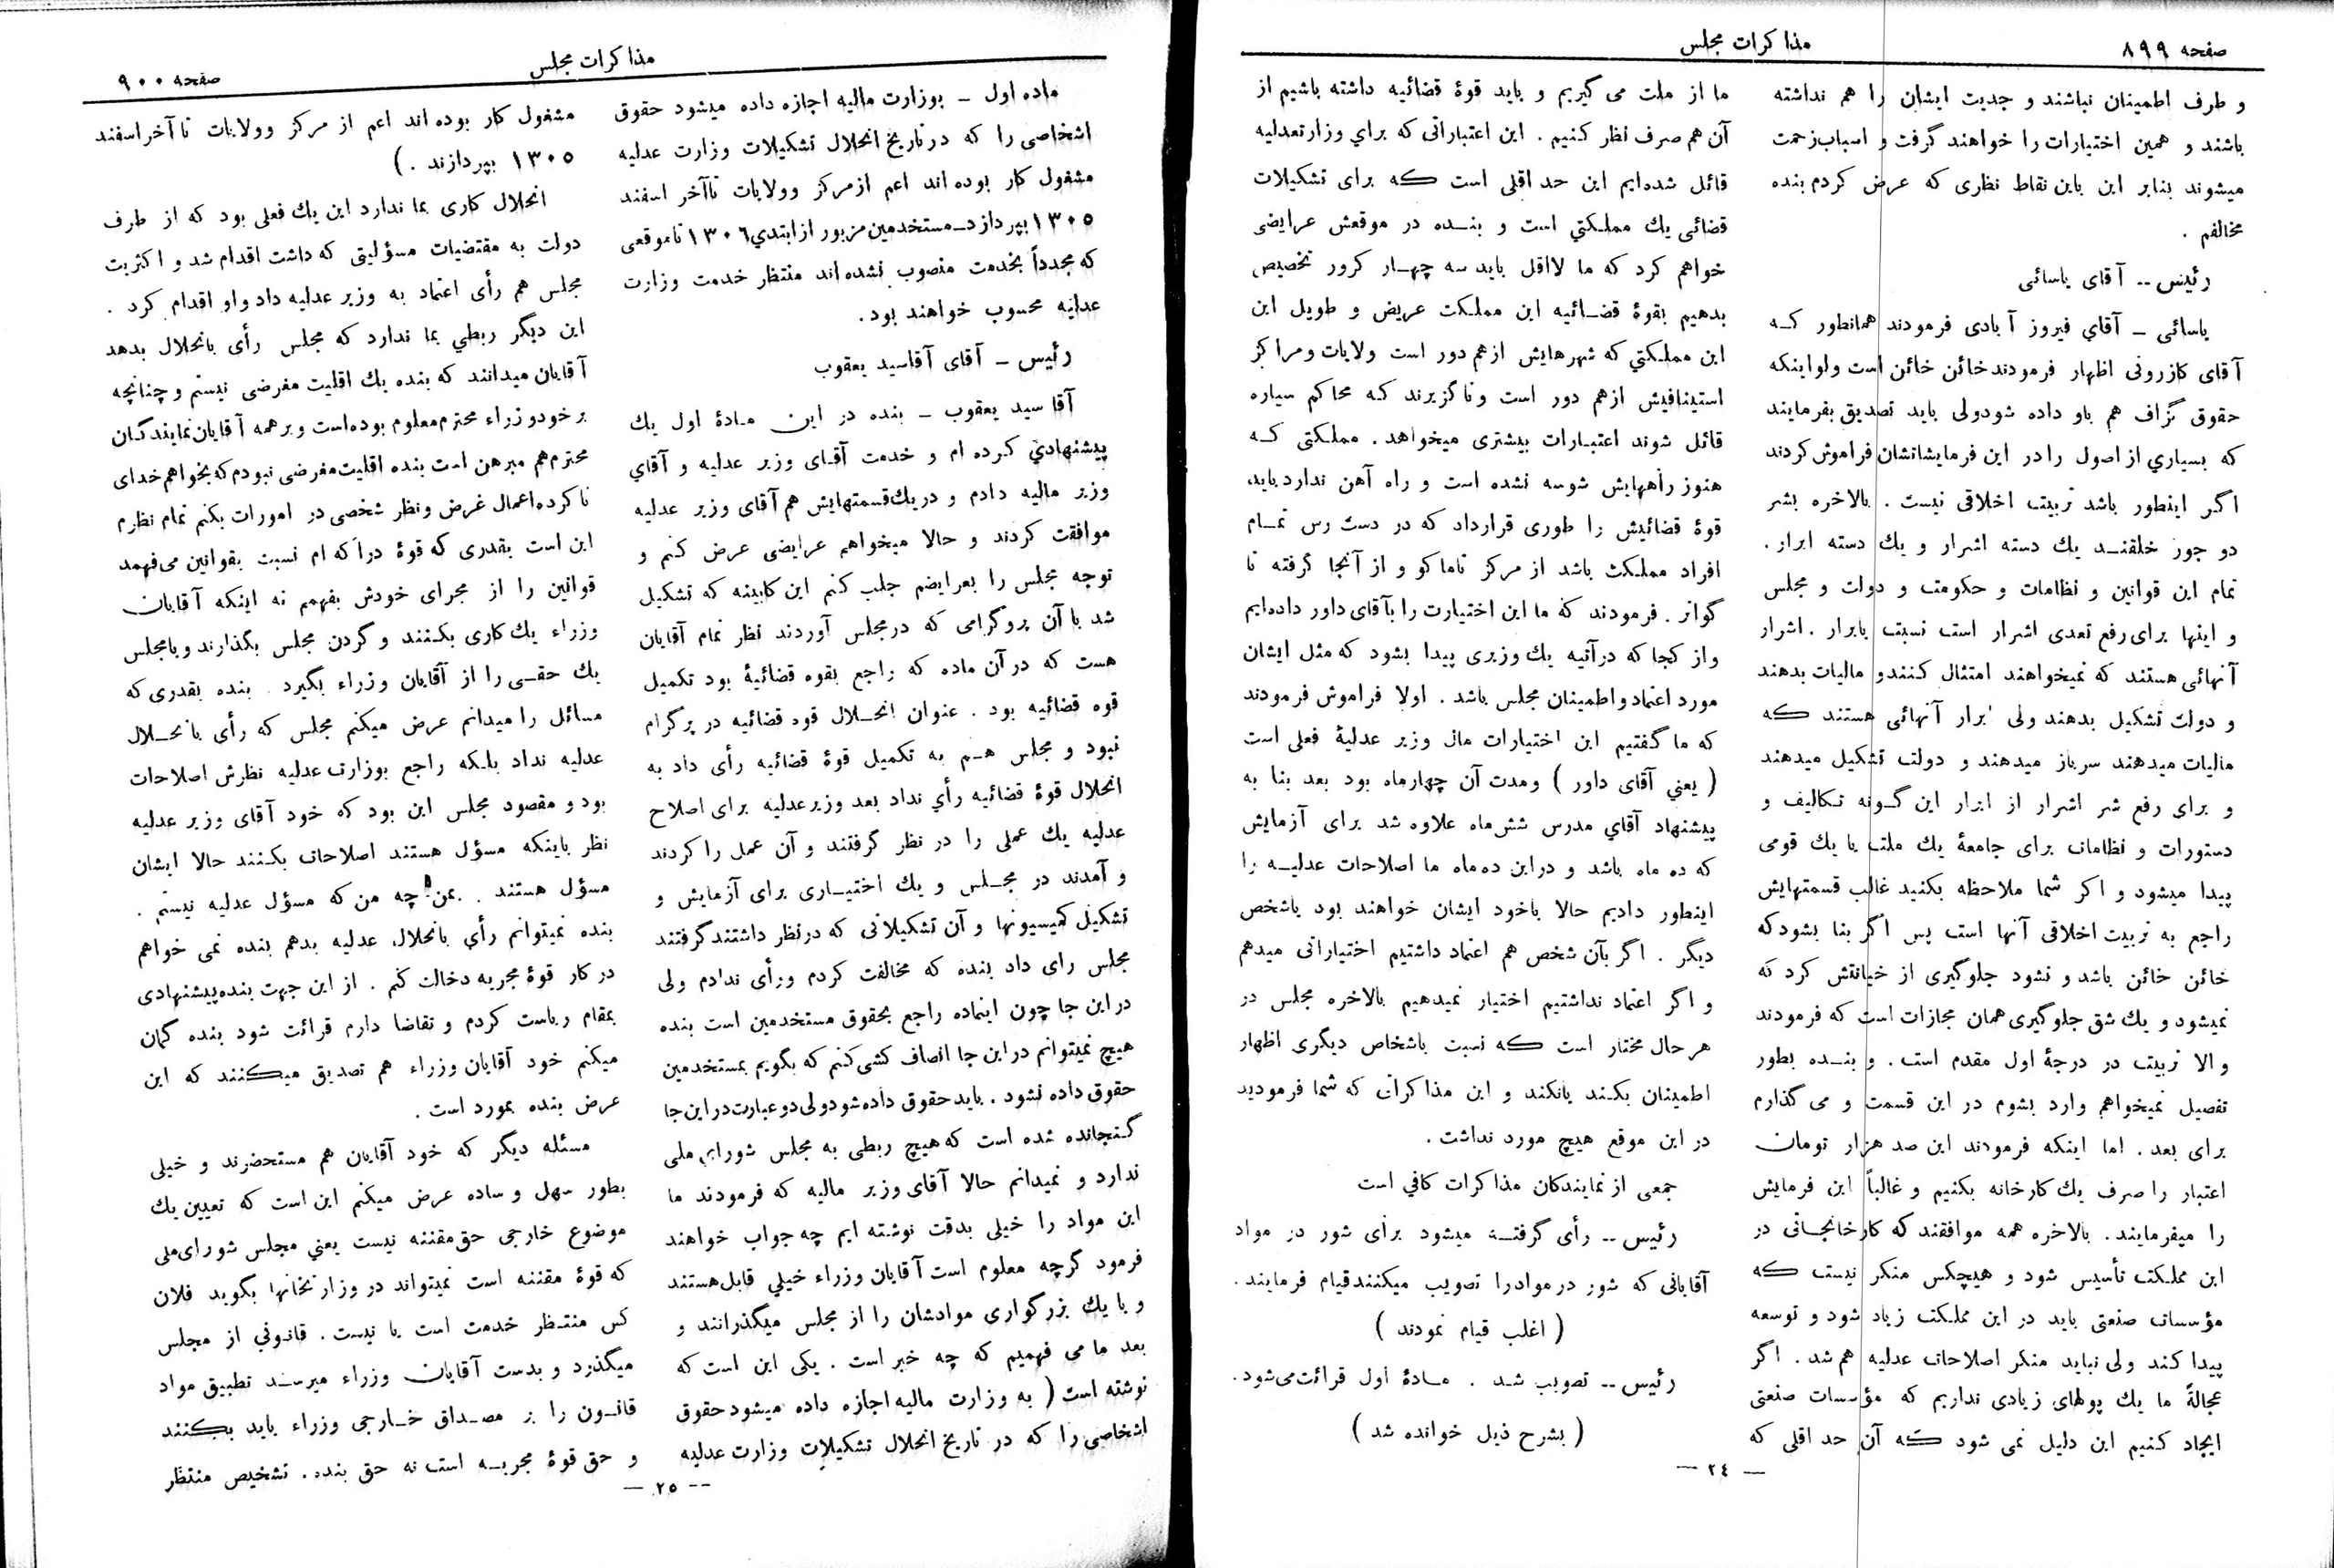 صفحه ۸۹۹
مذاکرات مجلس
و طرف اطمینان نباشند و جدیت ایشان را هم نداشته
باشند و همین اختیارات را خواهند گرفت و اسباب زحمت
میشوند بنابر این باین نقاط نظری که عرض کردم بنده
مخالفم .
رئیس -- آقای یاسائی
یاسائی – آقاي فیروز آبادی فرمودند همانطور که
آقای کازرونی اظهار فرمودند خائن خائن است ولو اینکه
حقوق گزاف هم باو داده شود ولی باید تصدیق بفرمایند
که بسیاري از اصول را در این فرمایشاتشان فراموش کردند
اگر اینطور باشد تربیت اخلاقی نیست . بالاخره بشر
دو جور خلقند یك دسته اشرار و یك دسته ابرار .
تمام این قوانین و نظامات و حکومت و دولت و مجلس
و اینها برای رفع تعدی اشرار است نسبت بابرار . اشرار
آنهائی هستند که نمیخواهند امتثال کنند و مالیات بدهند
و دولت تشکیل بدهند ولی ابرار آنهائی هستند که
مالیات میدهند سرباز میدهند و دولت تشکیل میدهند
و برای رفع شر اشرار از ابرار این گونه تکالیف و
دستورات و نظامات برای جامعۀ یك ملت یا یك قومی
پیدا میشود و اگر شما ملاحظه بکنید غالب قسمتهایش
راجع به تربیت اخلاقی آنها است پس اگر بنا بشود که
خائن خائن باشد و نشود جلوگیری از خیانتش کرد که
نمیشود و یك شق جلوگیری همان مجازات است که فرمودند
و الا تربیت در درجۀ اول مقدم است . و بنده بطور
تفصیل نمیخواهم وارد بشوم در این قسمت و می گذارم
برای بعد . اما اینکه فرمودند این صد هزار تومان
اعتبار را صرف یك کارخانه بکنیم و غالباً این فرمایش
را میفرمایند . بالاخره همه موافقند که کارخانجاتی در
این مملکت تأسیس شود و هیچکس منکر نیست که
مؤسسات صنعتی باید در این مملکت زیاد شود و توسعه
پیدا کند ولی نباید منکر اصلاحات عدلیه هم شد . اگر
عجالةً ما یك پولهای زیادی نداریم که مؤسسات صنعتی
ایجاد کنیم این دلیل نمی شود که آن حد اقلی که
ما از ملت می گیریم و باید قوۀ قضائیه داشته باشیم از
آن هم صرف نظر کنیم . این اعتباراتی که براي وزارتعدلیه
قائل شده‌ایم این حد اقلی است که برای تشکیلات
قضائی یك مملکتي است و بنده در موقعش عرایضی
خواهم کرد که ما لااقل باید سه چهار کرور تخصیص
بدهیم بقوۀ قضائیه این مملکت عریض و طویل این
این مملکتي که شهرهایش از هم دور است ولایات و مراکز
استینافیش از هم دور است و ناگزیرند که محاکم سیاره
قائل شوند اعتبارات بیشتری میخواهد . مملکتی که
هنوز راههایش شوسه نشده است و راه آهن ندارد باید
قوۀ قضائیش را طوری قرارداد که در دست رس تمام
افراد مملکت باشد از مرکز تاماکو و از آنجا گرفته تا
گواتر . فرمودند که ما این اختیارت را بآقای داور داده‌ایم
و از کجا که در آتیه یك وزیری پیدا بشود که مثل ایشان
مورد اعتماد و اطمینان مجلس باشد . اولا فراموش فرمودند
که ما گفتیم این اختیارات مال وزیر عدلیۀ فعلی است
( یعني آقای داور ) و مدت آن چهارماه بود بعد بنا به
پیشنهاد آقاي مدرس شش‌ماه علاوه شد برای آزمایش
که ده ماه باشد و در این ده ماه ما اصلاحات عدلیه را
اینطور دادیم حالا باخود ایشان خواهند بود یا شخص
دیگر . اگر بآن شخص هم اعتماد داشتیم اختیاراتی میدهم
و اگر اعتماد نداشتیم اختیار نمیدهیم بالاخره مجلس در
هر حال مختار است که نسبت باشخاص دیگری اظهار
اطمینان بکند یا نکند و این مذاکرات که شما فرمودید
در این موقع هیچ مورد نداشت .
جمعی از نمایندکان مذاکرات کافي است
رئیس -- رأی گرفته میشود برای شور در مواد
آقایانی که شور در مواد را تصویب میکنند قیام فرمایند .
( اغلب قیام نمودند )
رئیس -- تصویب شد . مادۀ اول قرائت می‌شود .
( بشرح ذیل خوانده شد )
— ۲۴ —
مذاکرات مجلس
صفحه ۹۰۰
ماده اول – بوزارت مالیه اجازه داده میشود حقوق
اشخاصی را که در تاریخ انحلال تشکیلات وزارت عدلیه
مشغول کار بوده اند اعم از مرکز و ولایات تا آخر اسفند
۱۳۰۵ بپردازد – مستخدمین مزبور از ابتدي ۱۳۰۶ تا موقعی
که مجدداً بخدمت منصوب نشده اند منتظر خدمت وزارت
عدلیه محسوب خواهند بود .
رئیس – آقای آقاسید یعقوب
آقا سید یعقوب – بنده در این مادۀ اول یك
پیشنهادي کرده ام و خدمت آقای وزیر عدلیه و آقاي
وزیر مالیه دادم و در یك قسمتهایش هم آقای وزیر عدلیه
موافقت کردند و حالا میخواهم عرایضی عرض کنم و
توجه مجلس را بعرایضم جلب کنم این کابینه که تشکیل
شد با آن پروگرامی که در مجلس آوردند نظر تمام آقایان
هست که در آن ماده که راجع بقوه قضائیۀ بود تکمیل
قوه قضائیه بود . عنوان انحلال قوه قضائیه در پرگرام
نبود و مجلس هم به تکمیل قوۀ قضائیه رأی داد به
انحلال قوۀ قضائیه رأي نداد بعد وزیر عدلیه برای اصلاح
عدلیه یك عملی را در نظر گرفتند و آن عمل را کردند
و آمدند در مجلس و یك اختیاری برای آزمایش و
تشکیل کمیسیونها و آن تشکیلاتی که در نظر داشتند گرفتند
مجلس رای داد بنده که مخالفت کردم و رأی ندادم ولی
در این جا چون اینماده راجع بحقوق مستخدمین است بنده
هیچ نمیتوانم در این جا انصاف کشی کنم که بگویم بمستخدمین
حقوق داده نشود . باید حقوق داده شود ولی دو عبارت در این جا
گنجانده شده است که هیچ ربطی به مجلس شورای ملی
ندارد و نمیدانم حالا آقای وزیر مالیه که فرمودند ما
این مواد را خیلی بدقت نوشته ایم چه جواب خواهند
فرمود گرچه معلوم است آقایان وزراء خیلي قابل هستند
و با یك بزرگواری موادشان را از مجلس میگذرانند و
بعد ما می فهمیم که چه خبر است . یکی این است که
نوشته است ( به وزارت مالیه اجازه داده میشود حقوق
اشخاصي را که در تاریخ انحلال تشکیلات وزارت عدلیه
مشغول کار بوده اند اعم از مرکز و ولایات تا آخر اسفند
۱۳۰۵ بپردازند . )
انحلال کاری بما ندارد این یك فعلی بود که از طرف
دولت به مقتضیات مسؤلیتی که داشت اقدام شد و اکثریت
مجلس هم رأی اعتماد به وزیر عدلیه داد واو اقدام کرد .
این دیگر ربطي بما ندارد که مجلس رأی بانحلال بدهد
آقایان میدانند که بنده یك اقلیت مغرضی نیستم و چنانچه
بر خود وزراء محترم معلوم بوده است و بر همه آقایان نمایندگان
محترم هم مبرهن است بنده اقلیت مغرضی نبودم که بخواهم خدای
نا کرده اعمال غرض و نظر شخصی در امورات بکنم تمام نظرم
این است بقدری که قوۀ دراکه ام نسبت بقوانین می فهمد
قوانین را از مجرای خودش بفهمم نه اینکه آقایان
وزراء یك کاری بکنند و گردن مجلس بگذارند و یا مجلس
یك حقی را از آقایان وزراء بگیرد . بنده بقدری که
مسائل را میدانم عرض میکنم مجلس که رأی بانحلال
عدلیه نداد بلکه راجع بوزارت عدلیه نظرش اصلاحات
بود و مقصود مجلس این بود که خود آقای وزیر عدلیه
نظر باینکه مسؤل هستند اصلاحات بکنند حالا ایشان
مسؤل هستند . بمن چه من که مسؤل عدلیه نیستم .
بنده نمیتوانم رأی بانحلال عدلیه بدهم بنده نمی خواهم
در کار قوۀ مجریه دخالت کنم . از این جهت بنده پیشنهادی
بمقام ریاست کردم و تقاضا دارم قرائت شود بنده گمان
میکنم خود آقایان وزراء هم تصدیق میکنند که این
عرض بنده بمورد است .
مسئله دیگر که خود آقایان هم مستحضرند و خیلی
بطور سهل و ساده عرض میکنم این است که تعیین یك
موضوع خارجی حق مقننه نیست یعني مجلس شورای ملی
که قوۀ مقننه است نمیتواند در وزارتخانها بگوید فلان
کس منتظر خدمت است یا نیست . قانوني از مجلس
میگذرد و بدست آقایان وزراء میرسد تطبیق مواد
قانون را بر مصداق خارجی وزراء باید بکنند
و حق قوۀ مجریه است نه حق بنده . تشخیص منتظر
-- ۲۵ —